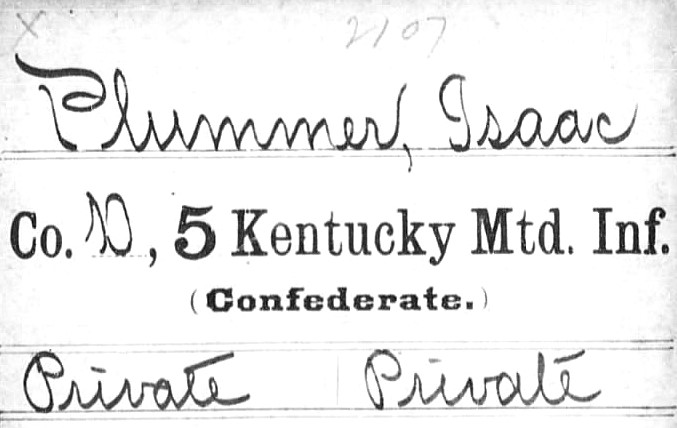 X 2107
Plummer, Isaac
Co. D, 5 Kentucky Mtd. Inf.
(Confederate.)
Private Private